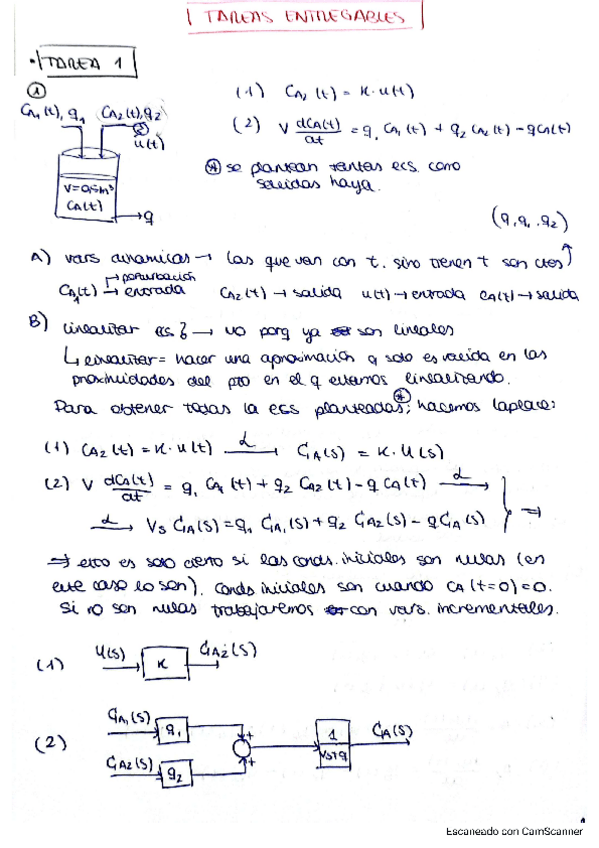 TAREAS ENTREGABLES
• TAREA 1
①
CA₁(t), q₁ CA₂(t), q₂
u(t)
V=0,5m³
CA(t)
q
(1) CA₂(t) = K·u(t)
(2) V dCA(t)/dt = q₁ CA₁(t) + q₂ CA₂(t) - qCA(t)
⊛ se plantean tantas ecs. como
salidas haya.
(q, q₁, q₂)
A) vars dinámicas → las que van con t. sino tienen t son ctes
perturbación
CA₁(t) → entrada CA₂(t) → salida u(t) → entrada CA(t) → salida
B) linealizar ecs? → no porq ya son lineales
↳ linealizar = hacer una aproximación q solo es valida en las
proximidades del pto en el q estamos linealizando.
Para obtener todas la ecs planteadas⊛; hacemos laplace:
(1) CA₂(t) = K·u(t) —L→ CA(s) = K·U(s)
(2) V dCA(t)/dt = q₁ CA₁(t) + q₂ CA₂(t) - q CA(t) —L→
—L→ Vs CA(s) = q₁ CA₁(s) + q₂ CA₂(s) - qCA(s) } ⇒
⇒ esto es solo cierto si las conds. iniciales son nulas (en
este caso lo son). Conds iniciales son cuando CA(t=0)=0.
Si no son nulas trabajaremos con vars. incrementales.
(1) U(s) K CA₂(s)
(2) CA₁(s) q₁ + 1/(Vs+q) CA(s)
CA₂(s) q₂ +
Escaneado con CamScanner